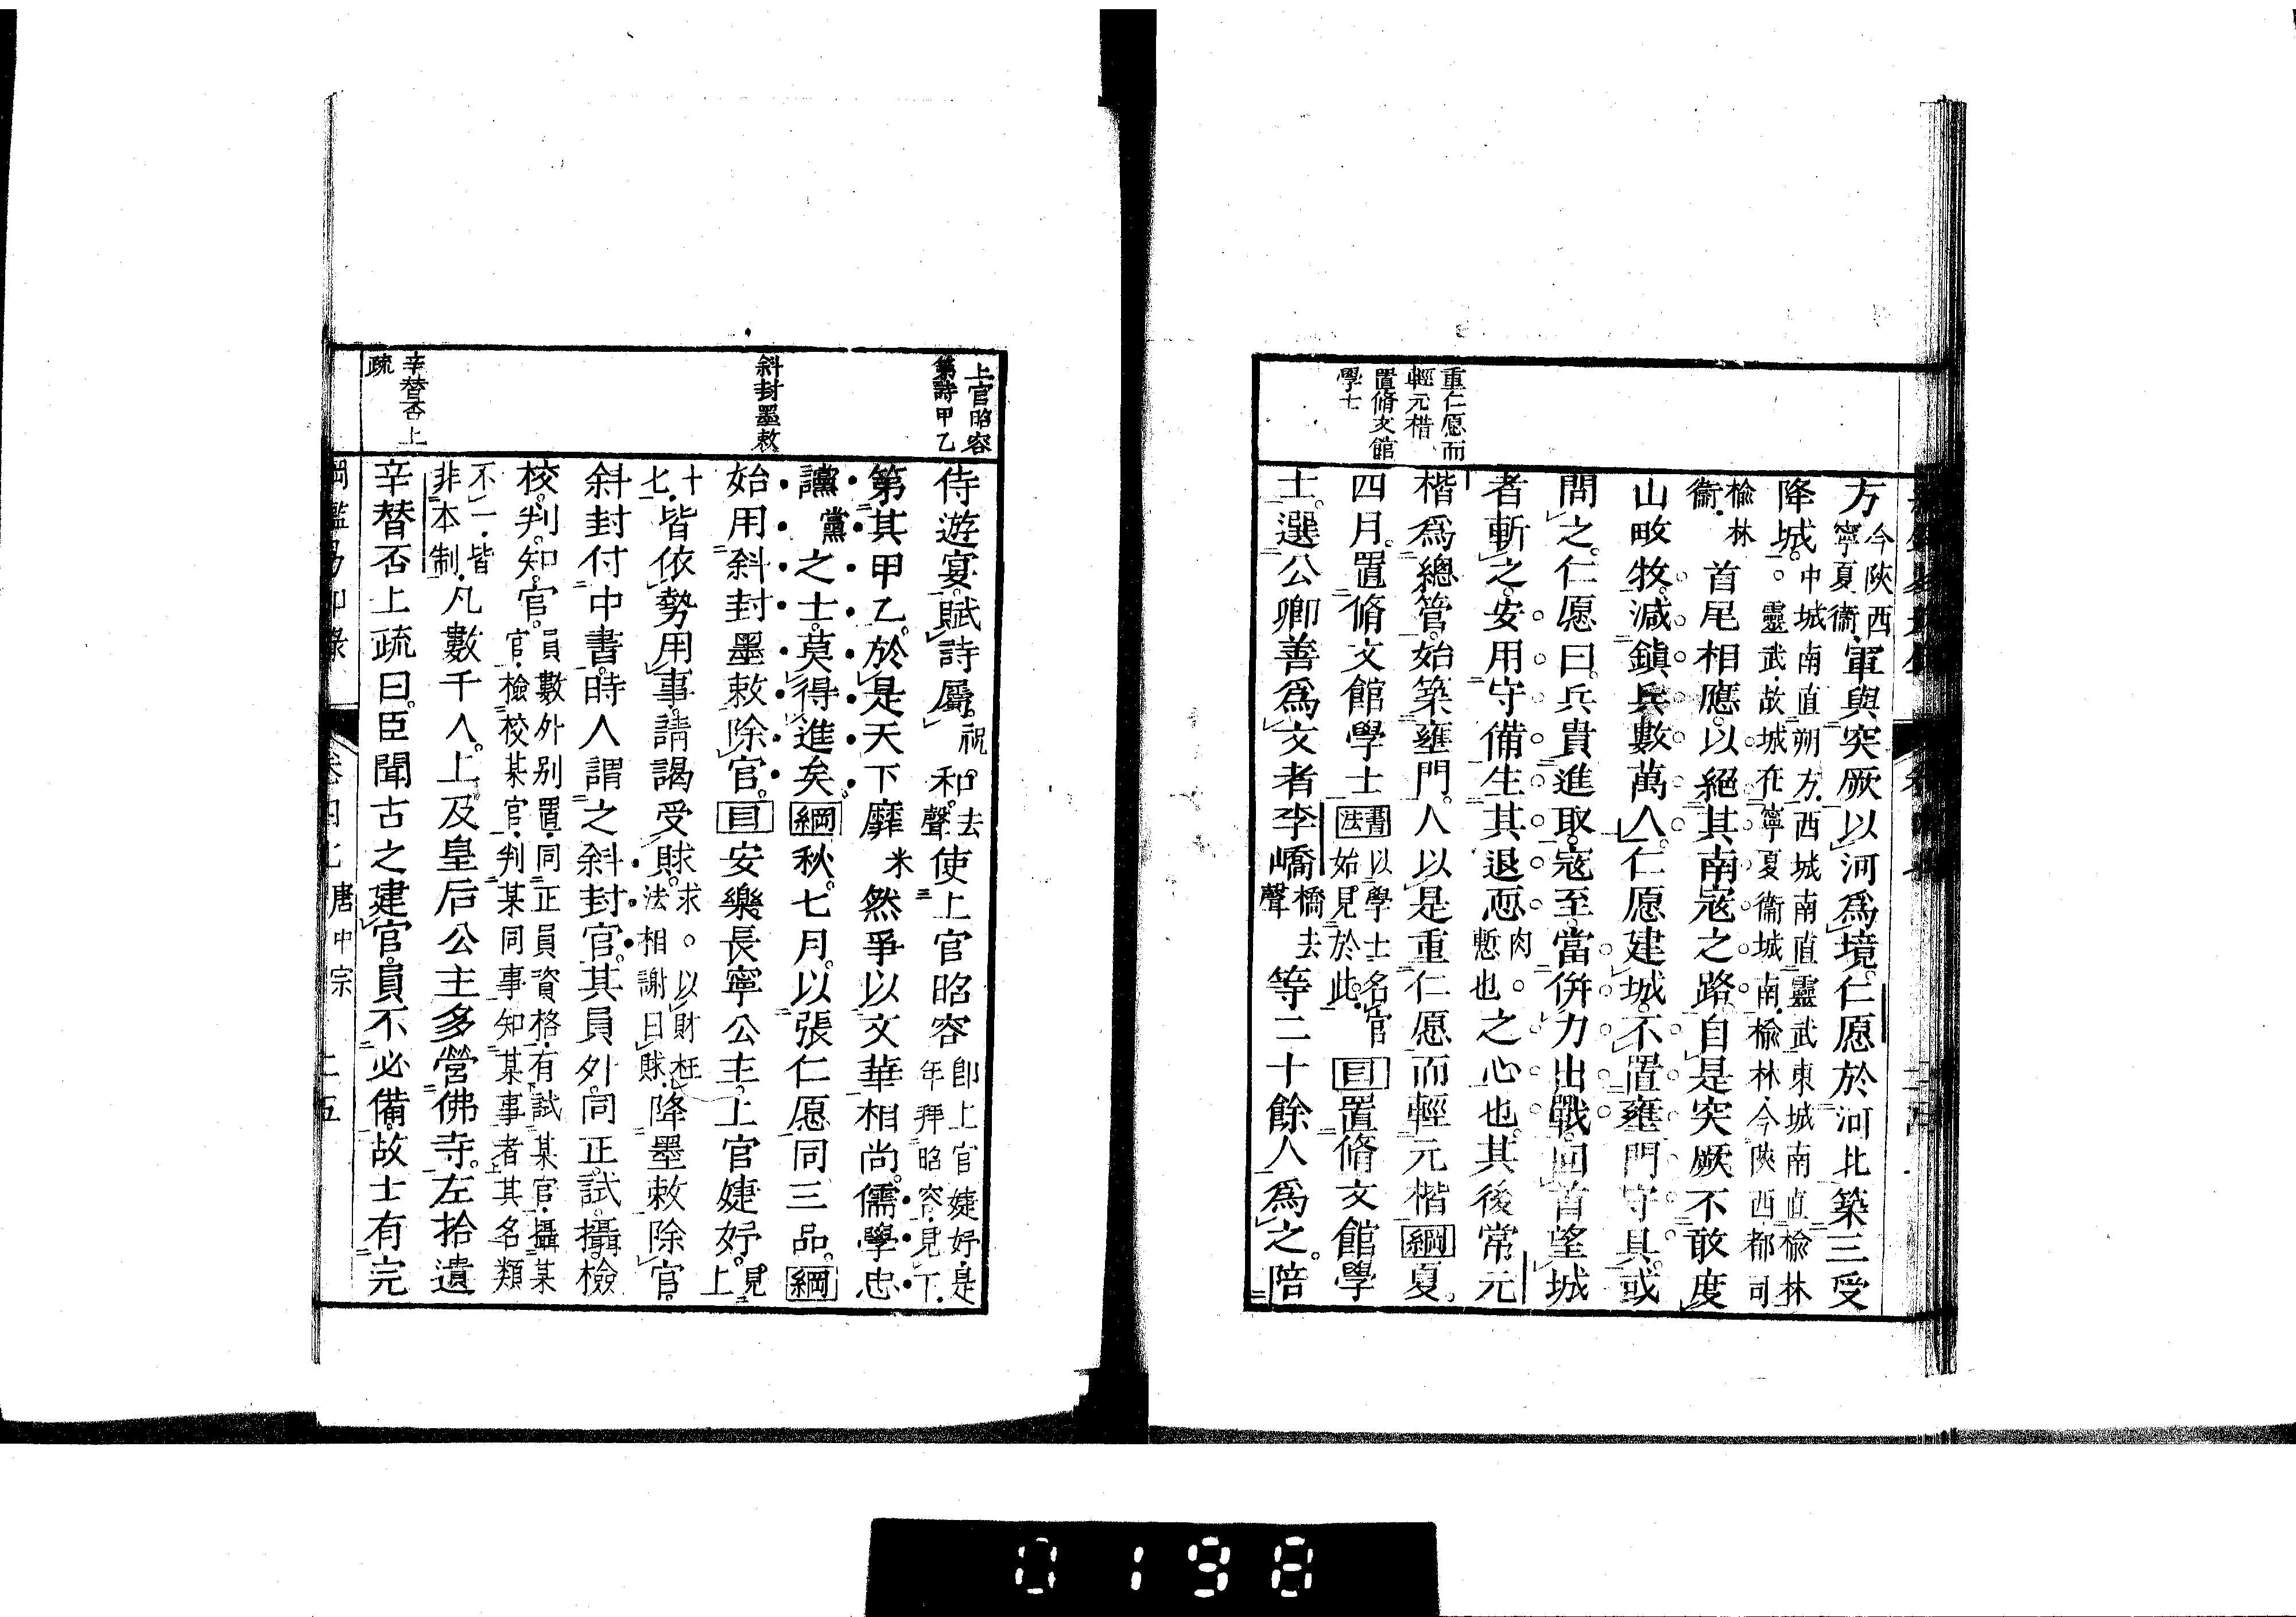 重仁愿而
輕元楷
置脩文館
學士
方今陝西寧夏衞軍與突厥以河爲境仁愿於河北築三受
降城中城南直朔方西城南直靈武東城南直榆林。靈武故城在寧夏衞城南榆林今陝西都司
榆林衞首尾相應以絕其南寇之路自是突厥不敢度
山畋牧減鎮兵數萬人仁愿建城不置壅門守具或
問之仁愿曰兵貴進取寇至當併力出戰回首望城
者斬之安用守備生其退恧肉。慙也之心也其後常元
楷爲總管始築壅門人以是重仁愿而輕元楷綱夏
四月置脩文館學士書法以學士名官始見於此目置脩文館學
士選公卿善爲文者李嶠橋去聲等二十餘人爲之陪
上官昭容
第詩甲乙
斜封墨敕
辛替否上
疏
侍遊宴賦詩屬祝和去聲使上官昭容卽上官婕妤是年拜昭容見下
第其甲乙於是天下靡米然爭以文華相尚儒學忠
讜黨之士莫得進矣綱秋七月以張仁愿同三品綱
始用斜封墨敕除官目安樂長寧公主上官婕妤見上
十七皆依勢用事請謁受賕求。以財枉法相謝曰賕降墨敕除官
斜封付中書時人謂之斜封官其員外同正試攝檢
校判知官員數外别置同正員資格有試某官攝某官檢校某官判某同事知某事者其名類
不一皆非本制凡數千人上及皇后公主多營佛寺左拾遺
辛替否上疏曰臣聞古之建官員不必備故士有完
唐中宗
0198